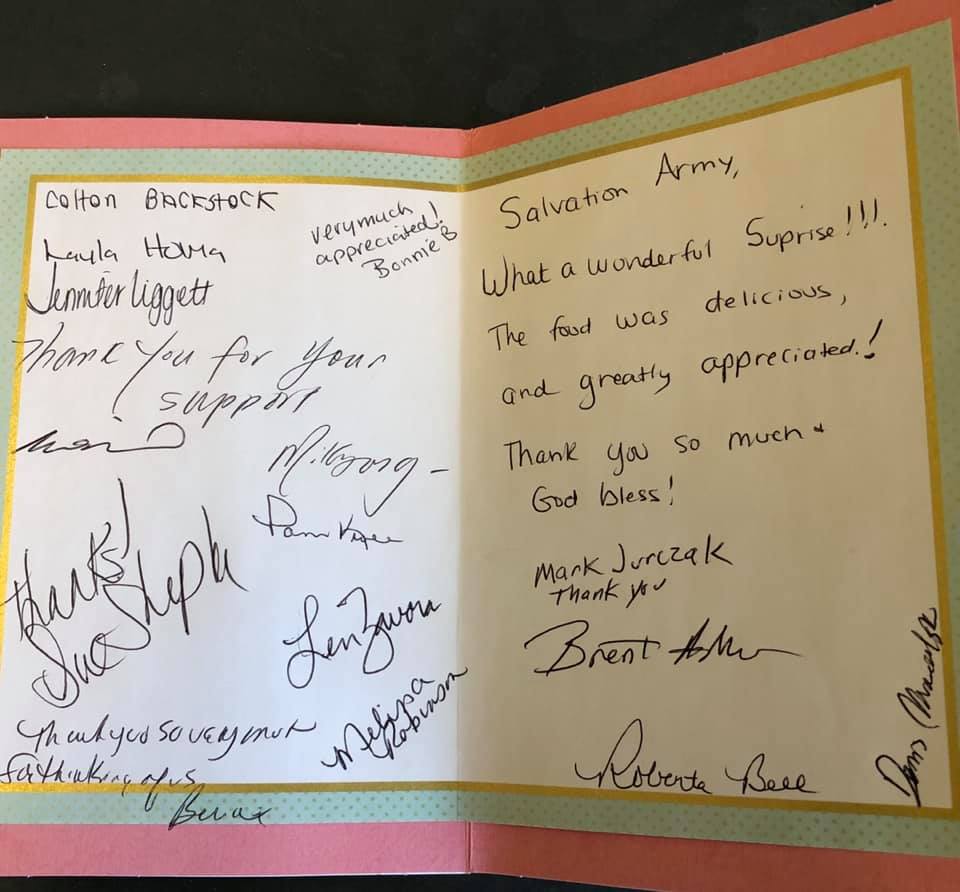 Colton BACKSTOCK
very much
appreciated!
Bonnie B
Layla
Jennifer Liggett
Thank You for Your
support
Thanks!
Sue
Pam
Len Zavora
Melissa
Robinson
Thank you so very much
for thinking of us
Salvation Army,
What a wonderful Suprise!!!.
The food was delicious,
and greatly appreciated.!
Thank you so much +
God bless!
Mark Jurczak
Thank you
Brent
Roberta Bell